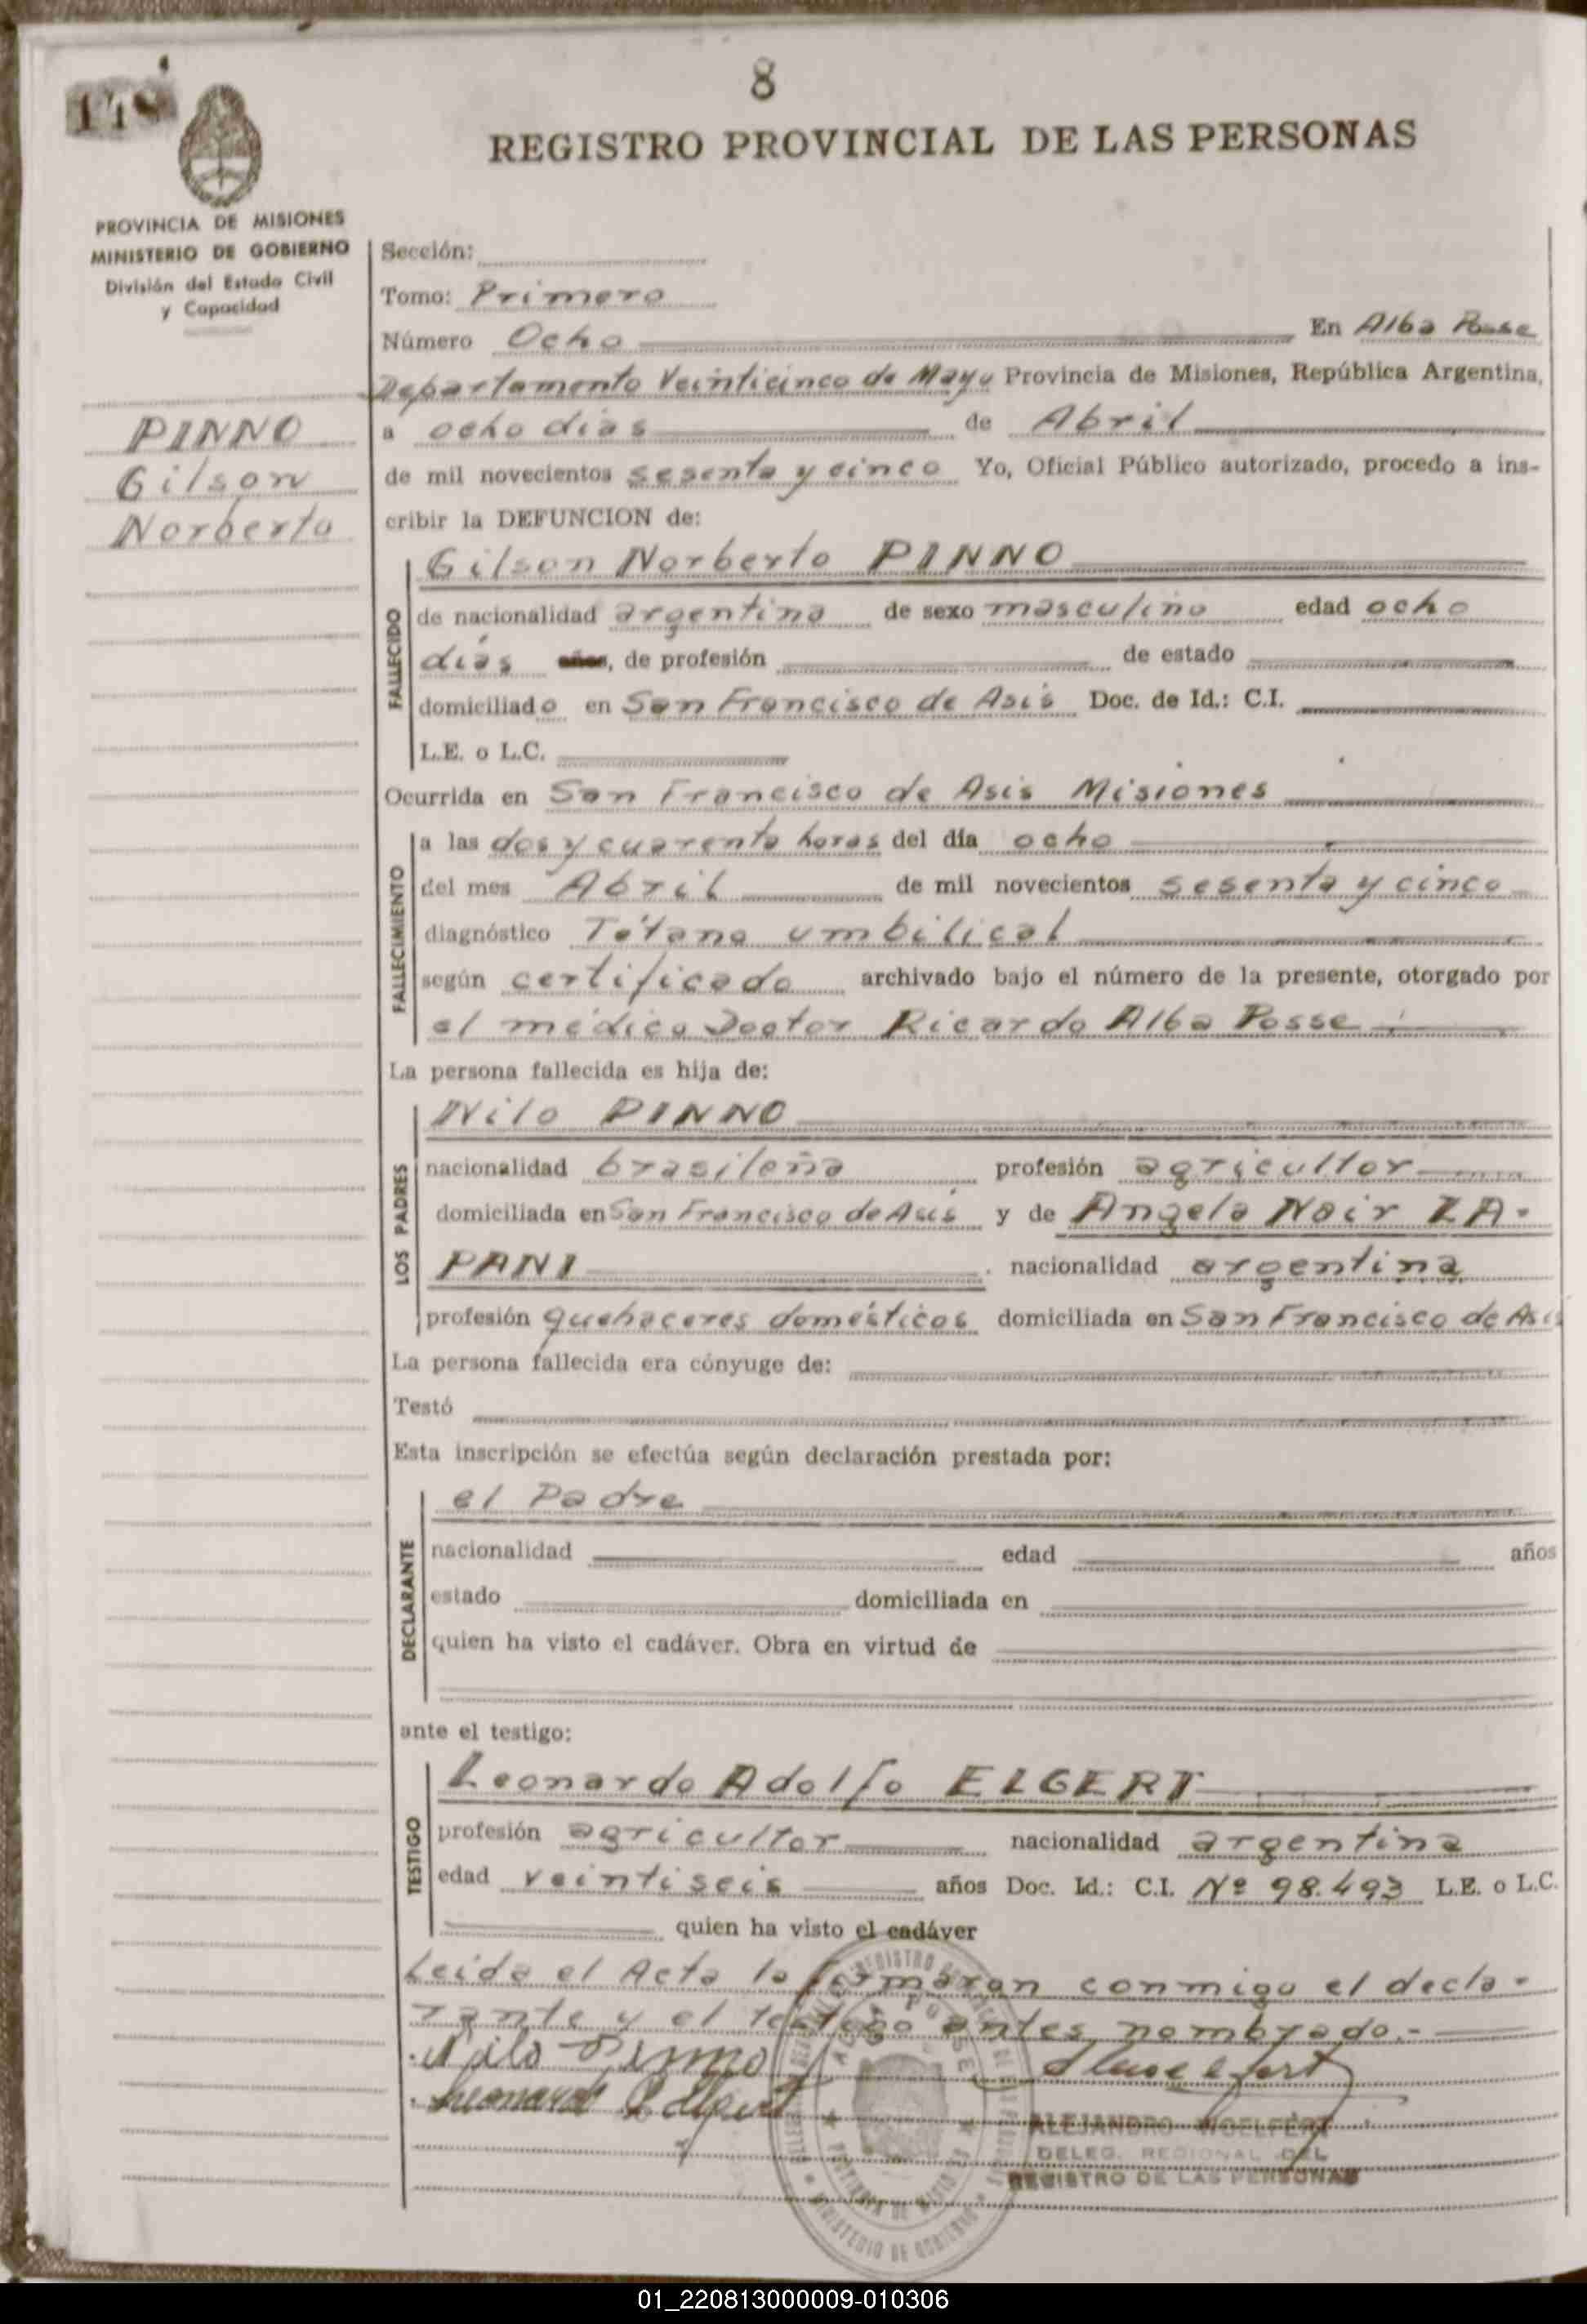 8
148
REGISTRO PROVINCIAL DE LAS PERSONAS
PROVINCIA DE MISIONES
MINISTERIO DE GOBIERNO
División del Estado Civil
y Capacidad
PINNO
Gilson
Norberto
Sección:
Tomo: Primero
Número Ocho En Alba Posse
Departamento Veinticinco de Mayo Provincia de Misiones, República Argentina,
a ocho días de Abril
de mil novecientos sesenta y cinco Yo, Oficial Público autorizado, procedo a ins-
cribir la DEFUNCION de:
FALLECIDO
Gilson Norberto PINNO
de nacionalidad argentina de sexo masculino edad ocho
días años, de profesión de estado
domiciliado en San Francisco de Asís Doc. de Id.: C.I.
L.E. o L.C.
Ocurrida en San Francisco de Asis Misiones
FALLECIMIENTO
a las dos y cuarenta horas del día ocho
del mes Abril de mil novecientos sesenta y cinco
diagnóstico Tétano umbilical
según certificado archivado bajo el número de la presente, otorgado por
el médico Doctor Ricardo Alba Posse
La persona fallecida es hija de:
LOS PADRES
Nilo PINNO
nacionalidad brasileña profesión agricultor
domiciliada en San Francisco de Asís y de Angela Nair ZA-
PANI nacionalidad argentina
profesión quehaceres domésticos domiciliada en San Francisco de Asis
La persona fallecida era cónyuge de:
Testó
Esta inscripción se efectúa según declaración prestada por:
DECLARANTE
el Padre
nacionalidad edad años
estado domiciliada en
quien ha visto el cadáver. Obra en virtud de
ante el testigo:
TESTIGO
Leonardo Adolfo ELGERT
profesión agricultor nacionalidad argentina
edad veintiseis años Doc. Id.: C.I. Nº 98.493 L.E. o L.C.
quien ha visto el cadáver
Leida el Acta la firmaron conmigo el decla-
rante y el testigo antes nombrado.-
Nilo Pinno
Leonardo A. Elgert
ALEJANDRO WOELFERT
DELEG. REGIONAL DEL
REGISTRO DE LAS PERSONAS
ALBA POSSE
PROVINCIA DE MISIONES
MINISTERIO DE GOBIERNO
01_220813000009-010306